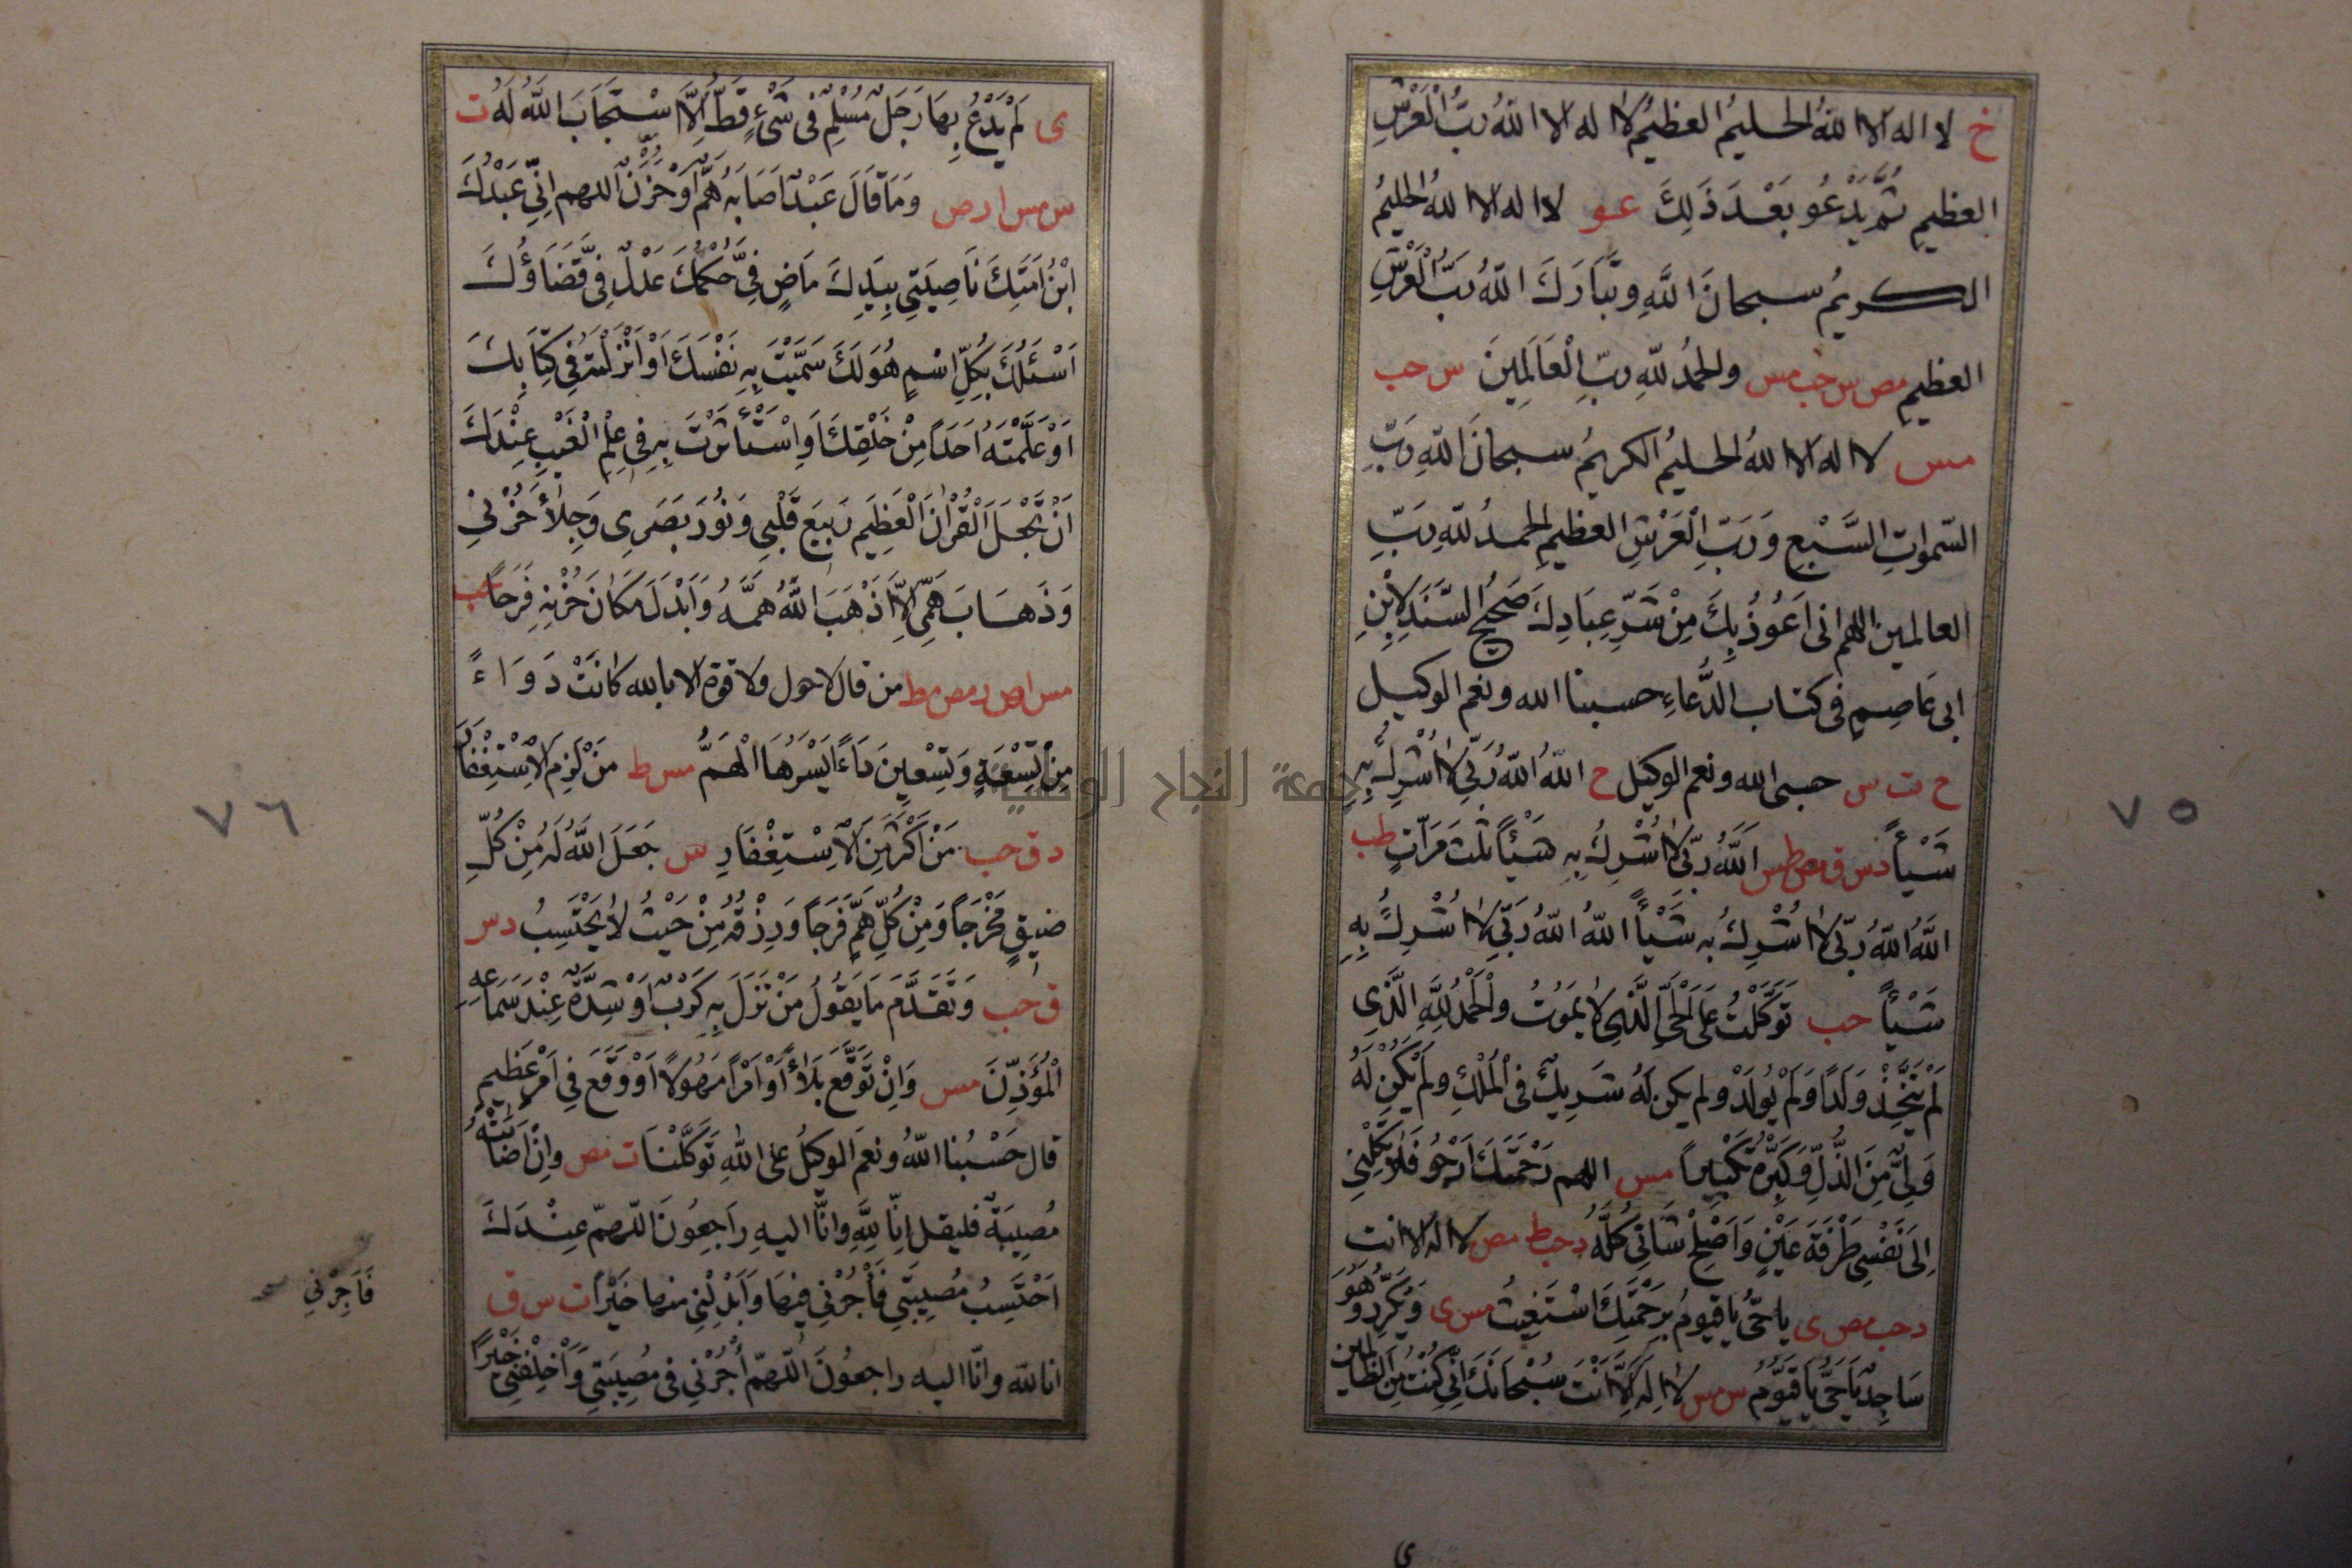 خ لا اله الا الله الحليم العظيم لا اله الا الله ربُّ الْعَرْشِ
العظيمِ ثُمَّ يَدْعُو بَعْدَ ذَلِكَ عو لا اله الا اللهُ الحليمُ
الكريمُ سبحانَ اللَّهِ وتَبَارَكَ اللهُ رَبُّ الْعَرْشِ
العظيمِ مص س حب مس والحمدُ للّهِ ربِّ الْعَالَمِينَ س حب
مس لا اله الا اللهُ الحليمُ الكريمُ سبحانَ اللهِ رَبِّ
السّمواتِ السَّبْعِ وَرَبِّ الْعَرْشِ العظيمِ الحمدُ للّهِ رَبِّ
العالمين اللهم انى اَعُوذُ بِكَ مِنْ شَرِّ عِبَادِكَ صَحِيحُ السَّنَدِ لِابْنِ
ابى عَاصِمٍ فى كتاب الدُّعاءِ حسبنا الله ونعم الوكيل
خ ت س حسبى الله ونعم الوكيل خ اللهُ اللهُ رَبِّى لَا اُشْرِكُ بِهِ
شَيْأً د س ق مص طس اَللَّهُ رَبِّى لَا اُشْرِكُ بِهِ شَيْأً ثلث مَرَّاتٍ طب
اللَّهُ اللهُ رَبِّى لَا اُشْرِكُ بِه شَيْأً اللهُ اللهُ رَبِّى لَا اُشْرِكُ بِهِ
شَيْأً حب تَوَكَّلْتُ عَلَى الْحَىِّ الَّذِى لَا يَمُوتُ والْحَمْدُ لِلَّهِ الَّذِى
لَمْ يَتَّخِذْ وَلَدًا وَلَمْ يُولَدْ ولم يكن لَهُ شَرِيكٌ فى الْمُلْكِ ولَمْ يَكُنْ لَهُ
وَلِىٌّ مِنَ الذُّلِّ وَكَبِّرْهُ تَكْبِيراً مس اللهم رَحْمَتَكَ اَرْجُو فَلَا تَكِلْنِى
اِلَى نَفْسِى طَرْفَةَ عَيْنٍ وَاَصْلِحْ شَانِى كُلَّهُ د حب ط مص لا اله الا انت
د حب مص ى يا حَىُّ يا قيومُ بِرَحْمَتِكَ اَسْتَغِيثُ مس ى وَيُكَرِّرُ وَهُوَ
سَاجِدٌ يَا حَىُّ يا قَيُّومُ س مس لا اِلَهَ اِلَّا اَنْتَ سُبْحَانَكَ اِنِّى كُنْتُ مِنَ الظالمين
٧٥
ى لَمْ يَدْعُ بِهَا رَجُلٌ مُسْلِمٌ فى شَىْءٍ قَطُّ اِلَّا اسْتَجَابَ اللّهُ لَهُ ت
س مس ا ر ص وَمَا قَالَ عَبْدٌ اَصَابَهُ هَمٌّ اَوْ حُزْنٌ اللهم اِنِّى عَبْدُكَ
ابْنُ اَمَتِكَ نَاصِيَتِى بِيَدِكَ مَاضٍ فِىَّ حُكْمُكَ عَدْلٌ فِىَّ قَضَاؤُكَ
اَسْئَلُكَ بِكُلِّ اسْمٍ هُوَ لَكَ سَمَّيْتَ بِهِ نَفْسَكَ اَوْ اَنْزَلْتَهُ فِى كِتَابِكَ
اَوْ عَلَّمْتَهُ اَحَداً مِنْ خَلْقِكَ اَوِ اسْتَأْثَرْتَ بِهِ فِى عِلْمِ الْغَيْبِ عِنْدَكَ
اَنْ تَجْعَلَ الْقُرْاٰنَ الْعَظِيَم رَبِيعَ قَلْبِى وَنُورَ بَصَرِى وَجِلَاءَ حُزْنِى
وَذَهَابَ هَمِّى اِلَّا اَذْهَبَ اللّهُ هَمَّهُ وَاَبْدَلَ مَكَانَ حُزْنِهِ فَرَحاً حب
مس ا ص ر مص مط من قال لا حول ولا قوة الا بالله كَانَتْ دَوَاءً
مِنْ تِسْعَةٍ وَتِسْعِينَ دَاءً اَيْسَرُهَا الْهَمُّ مس ط مَنْ لَزِمَ الْاِسْتِغْفَارَ
د ق حب مَنْ اَكْثَرَ مِنَ الْاِسْتِغْفَارِ س جَعَلَ اللّهُ لَهُ مِنْ كُلِّ
ضيقٍ مَخْرَجَاً وَمِنْ كُلِّ هَمٍّ فَرَجَاً وَرِزْقُهُ مِنْ حَيْثُ لَا يَحْتَسِبُ د س
ق حب وَتَقَدَّمَ مَا يَقُولُ مَنْ نَزَلَ بِهِ كَرْبٌ اَوْ شِدَّةٌ عِنْدَ سَمَاعِهِ
الْمُؤَذِّنَ مس وَاِنْ تَوَقَّعَ بَلَاءً اَوْ اَمْراً مَهُولًا اَوْ وَقَعَ فِى اَمْرٍ عَظِيمٍ
قال حَسْبُنا اللّهُ ونعم الوكيلُ على اللهِ تَوَكَّلْنَا ت مص وِاِنْ اَصَابَتْهُ
مُصِيبَةٌ فليقل اِنَّا لِلَّهِ وانّا اليهِ رَاجِعُونَ اللّهمّ عِنْدَكَ
اَحْتَسِبُ مُصِيبَتِى فَأْجُرْنِى فِيهَا وَاَبْدِلْنِى منها خَيْرًا ت س ق
انا لله وانّا اليه راجعُونَ اللّهمّ أْجُرْنِي فى مُصِيبَتِى وَاَخْلِفْنِى خَيْراً
فَآجِرْنِي
٧٦
جامعة النجاح الوطنية